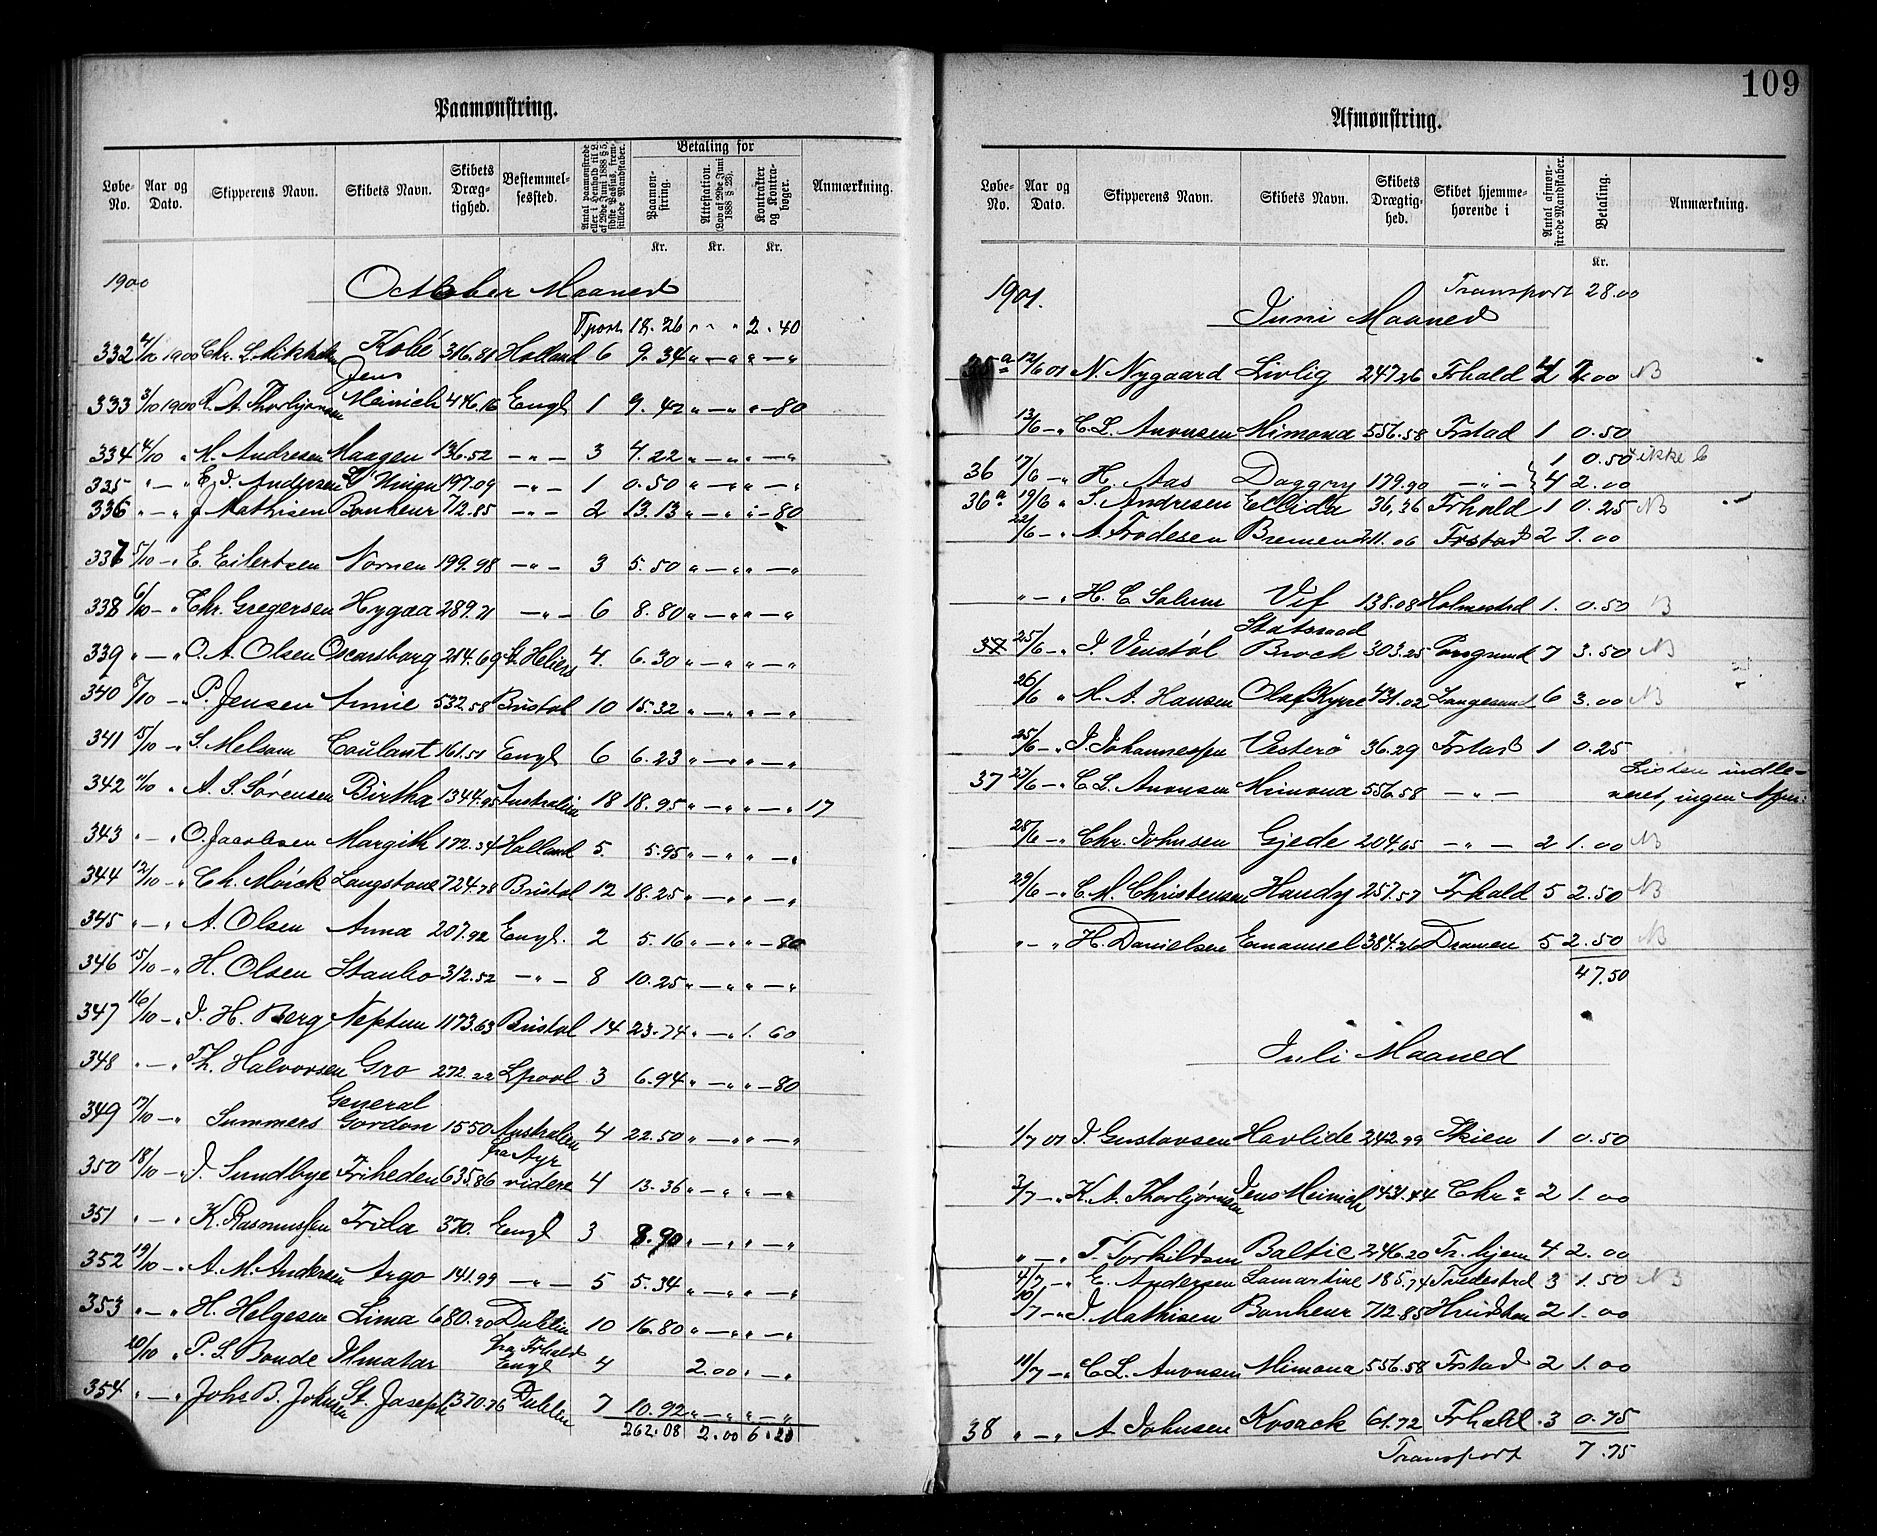 109
Paamønstring.
Løbe-No. Aar og Dato. Skipperens Navn. Skibets Navn. Skibets Dræg-tighed. Bestemmel-sessted. Antal paamønstrede eller i Henhold til L. af 29de Juni 1888 § 5, sidste Passus, frem-stillede Mandskaber. Betaling for Paamøn-string. Attestation. (Lov af 29de Juni 1888 § 23). Kontrakter og Kontra-bøger. Anmærkning.
Kr. Kr. Kr.
1900 October Maaned
Tport 18.26 " " " 2.40
332 2/10 1900 Chr. L. Mikkelsen Kobé 316.81 Holland 6 9.34 " — " " — "
333 3/10 1900 K. A. Thorbjørnsen Jens Meinich 446.16 Engl 1 9.42 " — " " — 80
334 4/10 " M. Andresen Haagen 136.52 — " — 3 4.22 " — " " — "
335 " — " E. J. Andersen 197.09 — " — 1 0.50 " — " " — "
336 " — " J Mathisen Bonheur 712.85 — " — 2 13.13 " — " " — 80
337 5/10 — " E. Eilertsen Nornen 199.98 — " — 3 5.50 " — " " — "
338 6/10 — " Chr. Gregersen Hygæa 289.21 — " — 6 8.80 " — " " — "
339 " — " O. A. Olsen Oscarsborg 214.69 St. Heliers 4. 6.30 " — " " — "
340 8/10 — " P. Jensen Annie 532.58 Bristol 10 15.32 " — " " — "
341 5/10 — " S. Melsom Coulant 161.51 Engl 6 6.23 " — " " — "
342 " A. S. Sørensen Birtha 1344.95 Australien 18 18.95 " — " " — " 17
343 " — " O. Jacobsen Margith 172.34 Holland 5. 5.95 " — " " — "
344 12/10 — " Ch. Moïck Langstone 724.78 Bristol 12 18.25 " — " " — "
345 " — " A. Olsen Anna 207.92 Engl. 2 5.16 " — " " — 80
346 15/10 — " H. Olsen Stanho 312.52 — " — 8 10.25 " — " " — "
347 16/10 — " J. H. Berg Neptun 1173.63 Bristol 14 23.74 " — " 1. 60
348 " — " Th. Halvorsen Gro 272.22 Lpool 3 6.94 " — " " — 80
349 17/10 — " Summers General Gordon 1550 Australien 4 22.50 " — " " — "
350 18/10 — " J. Sundbye Friheden 635.86 fra Ayr videre 4 13.36 " — " " — "
351 " — " K. Rasmussen Frida 370. Engl 3 8.90 " — " " — "
352 19/10 — " A. M. Andersen Argo 141.99 — " — 5 5.34 " — " " — "
353 " — " H. Helgesen Lima 680.20 Dublin 10 16.80 " — " " — "
20/10 " P. S. Bonde Ilmatar fra Frhald Engl 4 2.00 " — "
354 " — " Johs B. Johnsen St. Joseph 1370.76 Dublin 7 10.92 " — " " — "
262.08 2.00 6.20
Afmønstring.
Løbe-No. Aar og Dato. Skipperens Navn. Skibets Navn. Skibets Drægtig-hed. Skibet hjemme-hørende i Antal afmøn-strede Mandskaber. Betaling. Anmærkning.
Kr.
1901. Transport 28.00
Juni Maaned
35a 12/6 01 N. Nygaard Livlig 247.26 Frhald 4 2.00 NB
13/6 — " C. L. Anonsen Mimona 556.58 Frstad 1 0.50
1 0.50 ikke b
36 17/6 — " H. Aas Daggry 179.90 — " — 4 2.00
36a 19/6 " S. Andresen Ellida 36,36 Frhald 1 0.25 NB
22/6 — " A. Frodesen Bremen 211.06 Frstad 2 1.00
" — " H. C. Solum Vif 138.08 Holmestrd 1. 0.50 NB
37 25/6 — " J. Venstøl Statsraad Broch 303.25 Porsgrund 7 3.50 NB
26/6 " M. A. Hansen Olaf Kyrre 431.02 Langesund 6 3.00 NB
25/6 — " J. Johannessen Vesterø 36.29 Frstad 1 0.25
37 27/6 — " C. L. Anonsen Mimona 556.58 — " — Listen indle-
neret, ingen
28/6 — " Chr. Johnsen Gjede 204,65 — " — 2 1.00 NB
29/6 — " C. M. Christensen Handy 257.57 Frhald 5 2.50 NB
" — " H. Danielsen Emanuel 384.26 Dramen 5 2.50 NB
47.50
Juli Maaned
1/7 01 J. Gustavsen Havlide 242.99 Skien 1 0.50
2/7 — " K. A. Thorbjørnsen Jens Meinich 431.44 Chra 2 1.00
" — " T. Torkildsen Baltic 246.20 Tr. hjem 4 2.00
4/7 — " E. Andersen Lamartine 185.74 Tvedestrd 3 1.50 NB
10/7 — " J. Mathisen Bonheur 712.85 Hvidsten 2 1.00
11/7 — " C. L. Anonsen Mimona 556.58 Frstad 2 1.00
38 " — " A. Johnsen Kosack 61.72 Frhald 3 0.75
Transport 7.75